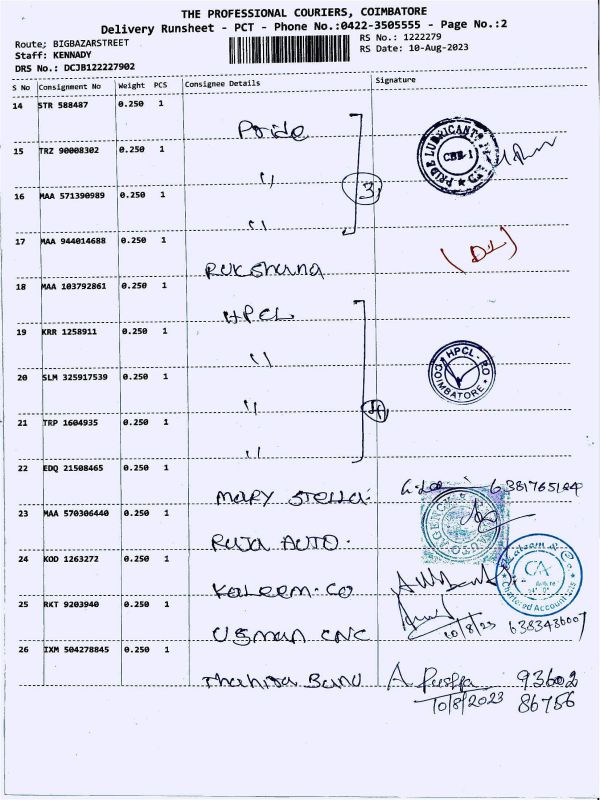 THE PROFESSIONAL COURIERS, COIMBATORE
Delivery Runsheet - PCT - Phone No.:0422-3505555 - Page No.:2
Route; BIGBAZARSTREET
Staff: KENNADY
DRS No.: DCJB122227902
RS No.: 1222279
RS Date: 10-Aug-2023
S No Consignment No Weight PCS Consignee Details Signature
14 STR 588487 0.250 1 Pride
15 TRZ 90008302 0.250 1 "
PRIDE LUBRICANTS
CBE-1
3
16 MAA 571390989 0.250 1 "
17 MAA 944014688 0.250 1 Rukshana
(DL)
18 MAA 103792861 0.250 1 HPCL
19 KRR 1258911 0.250 1 "
HPCL - RO
COIMBATORE
20 SLM 325917539 0.250 1 "
4
21 TRP 1604935 0.250 1 "
22 EDQ 21508465 0.250 1 MARY STELLA.
23 MAA 570306440 0.250 1 RAJA AUTO.
24 KOD 1263272 0.250 1 Kaleem.Co
Kaleem & Co.
CA
Chartered Accountants
25 RKT 9203940 0.250 1 USMAN CNC
10/8/23 6383436007
26 IXM 504278845 0.250 1 Thahira Banu A Pushpa 93602
10/8/2023 86756